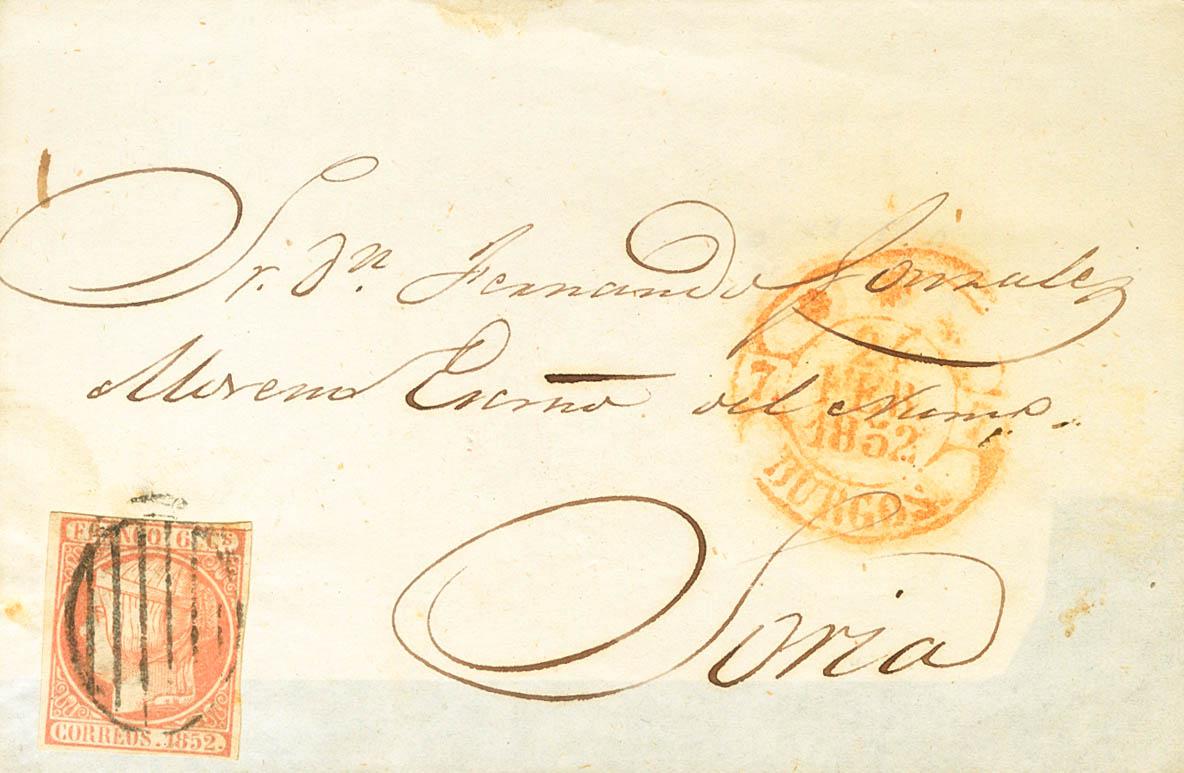 Sr. Dn. Fernando Gonzalez
Moreno Escno del Numo.
Soria
7
FEB
1852
BURGOS
FRANCO 6 Cs
CORREOS. 1852.